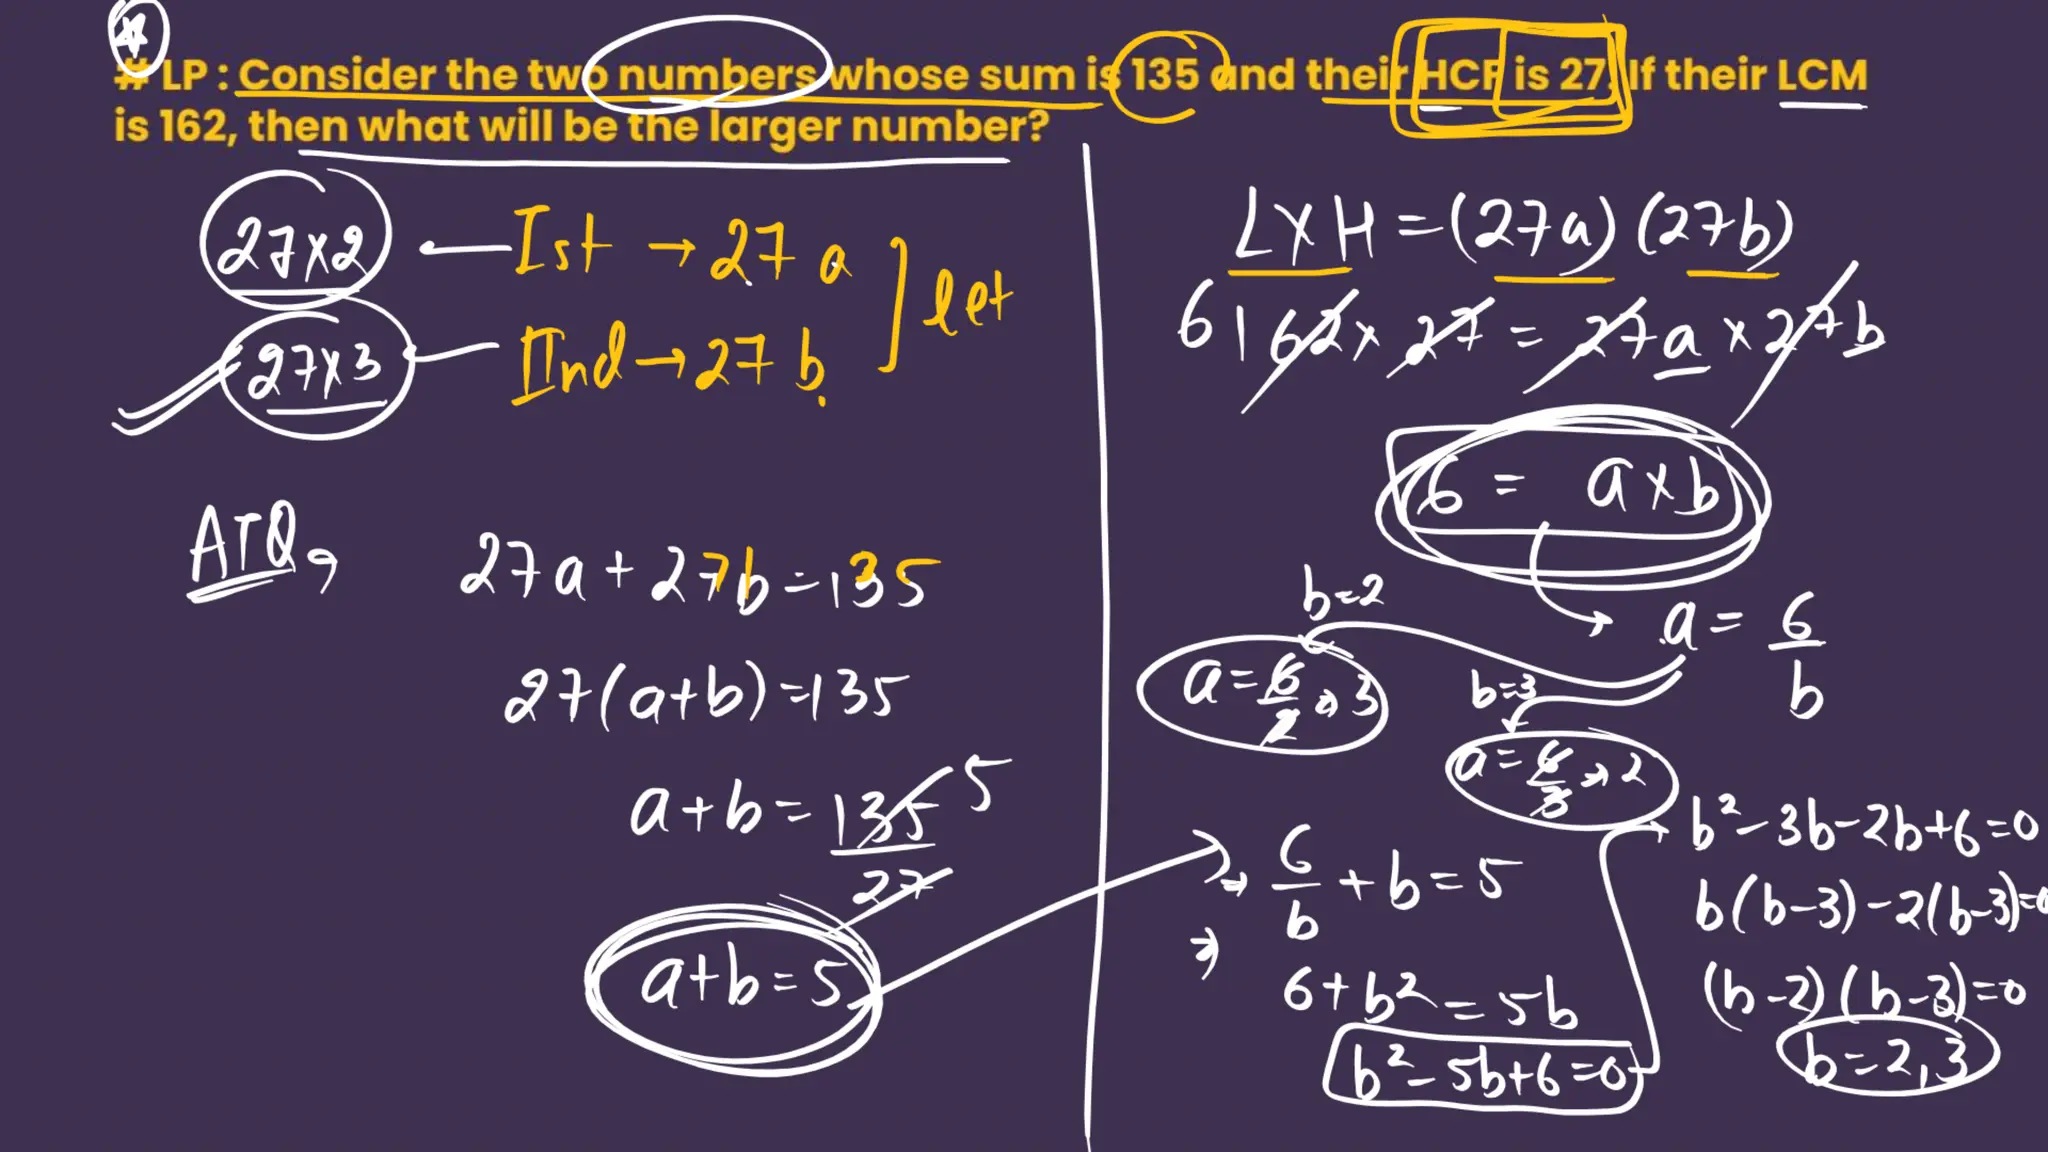 # LP : Consider the two numbers whose sum is 135 and their HCF is 27. If their LCM
is 162, then what will be the larger number?
27×2 ← Ist → 27 a
27×3 — IInd → 27 b
] let
ATQ,
27a + 27b = 135
27(a+b) = 135
a+b = 135/27 5
a+b = 5
L×H = (27a) (27b)
6 162 × 27 = 27a × 27b
6 = a×b
a = 6/b
b=2
a = 6/2 → 3
b=3
a = 6/3 → 2
⇒ 6/b + b = 5
⇒
6+b² = 5b
b² - 5b+6 = 0
b² - 3b - 2b + 6 = 0
b(b-3) - 2(b-3) = 0
(b-2) (b-3) = 0
b = 2, 3